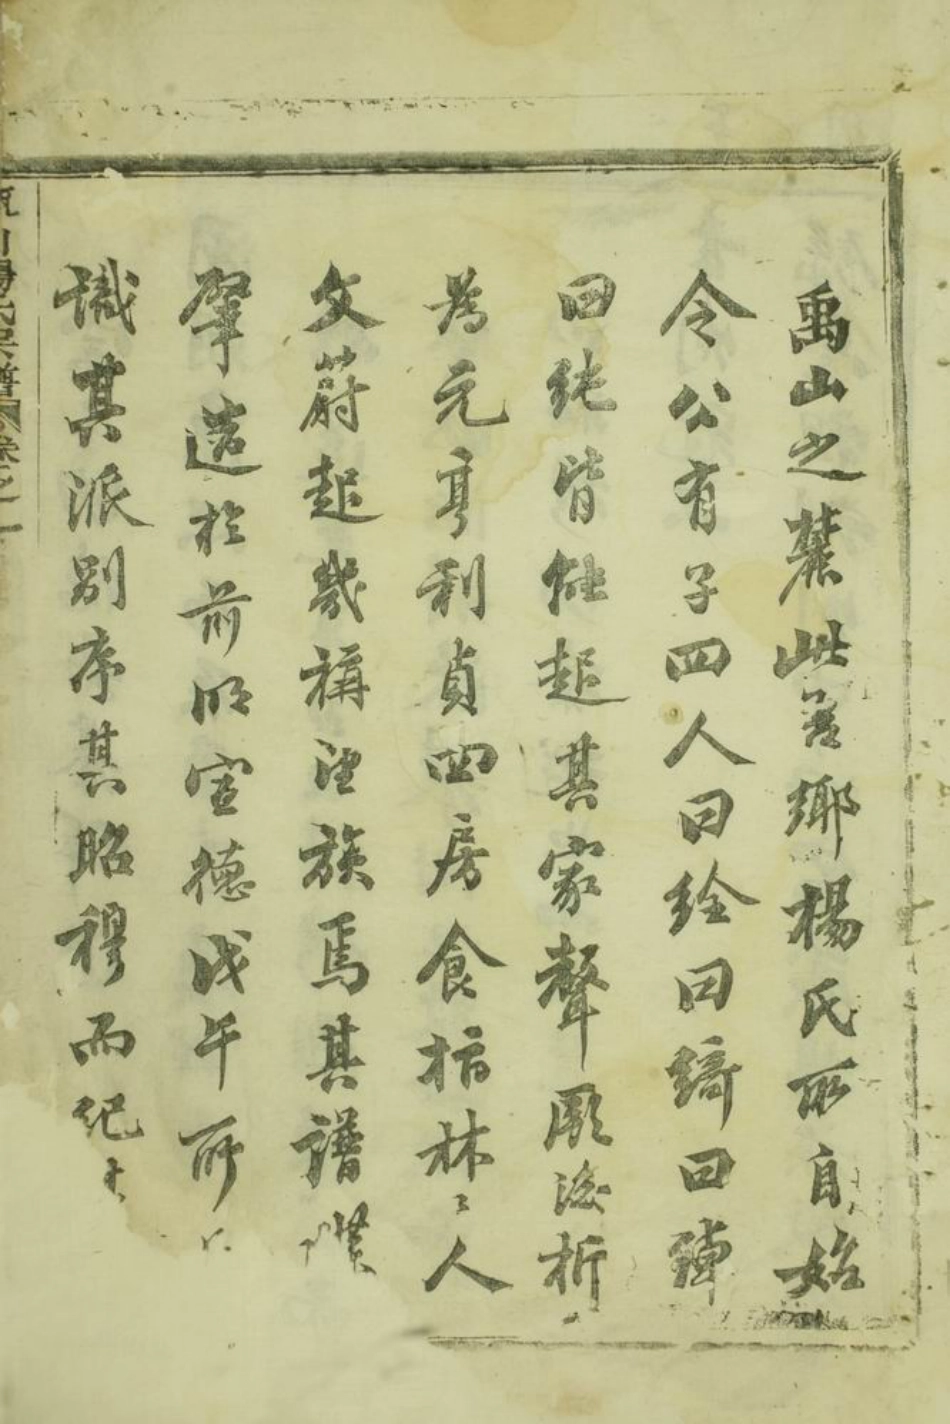 禹山之麓此吾鄉楊氏所自始
令公有子四人曰銓曰綺曰緯
曰純皆能起其家聲厥後析
為元亨利貞四房食指林〻人
文蔚起幾稱望族焉其譜
肇造於前明宣德戊午所
識其派別序其昭穆而紀
楊氏宗譜 卷之一